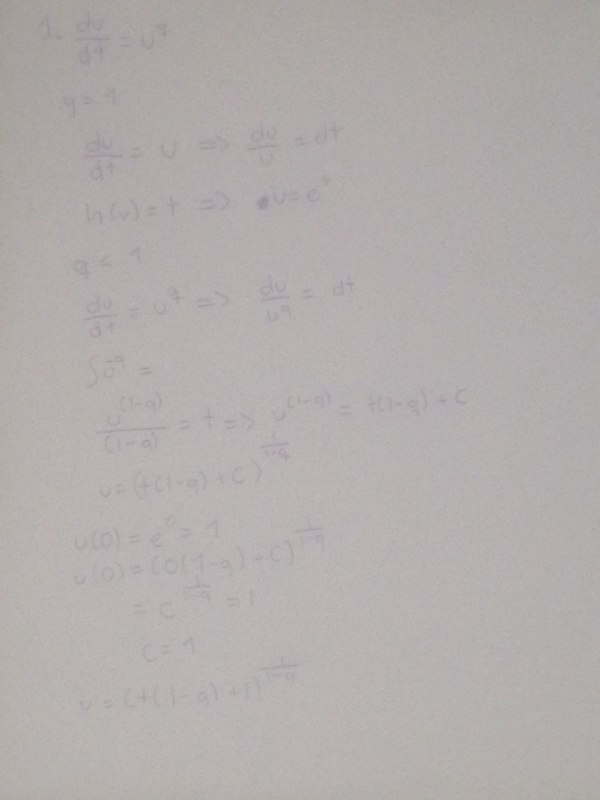 1. du/dt = u^q
q = 1
du/dt = u => du/u = dt
ln(u) = t => u = e^t
q < 1
du/dt = u^q => du/u^q = dt
∫u^-q =
u^(1-q)/(1-q) = t => u^(1-q) = t(1-q) + C
u = (t(1-q) + C)^1/1-q
u(0) = e^0 = 1
u(0) = (0(1-q) + C)^1/1-q
= C^1/1-q = 1
C = 1
u = (t(1-q) + 1)^1/1-q